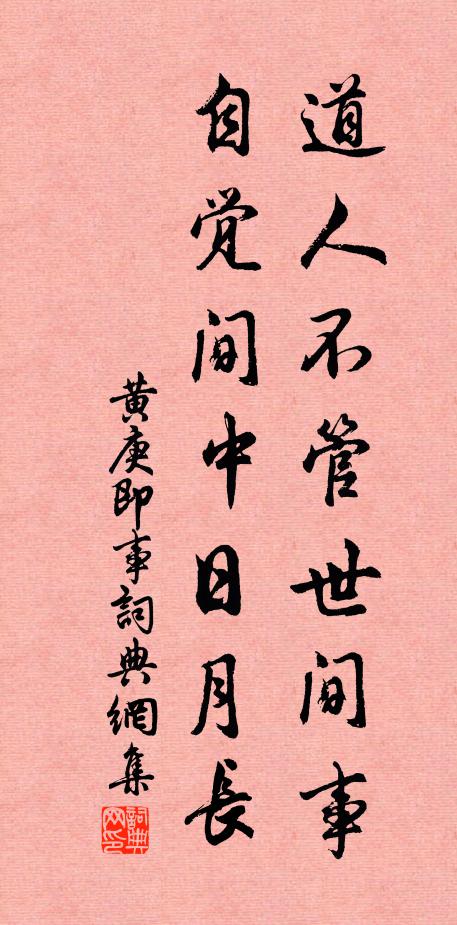 道人不管世间事
自觉间中日月長
黄庚即事詞典網集
詞典网印